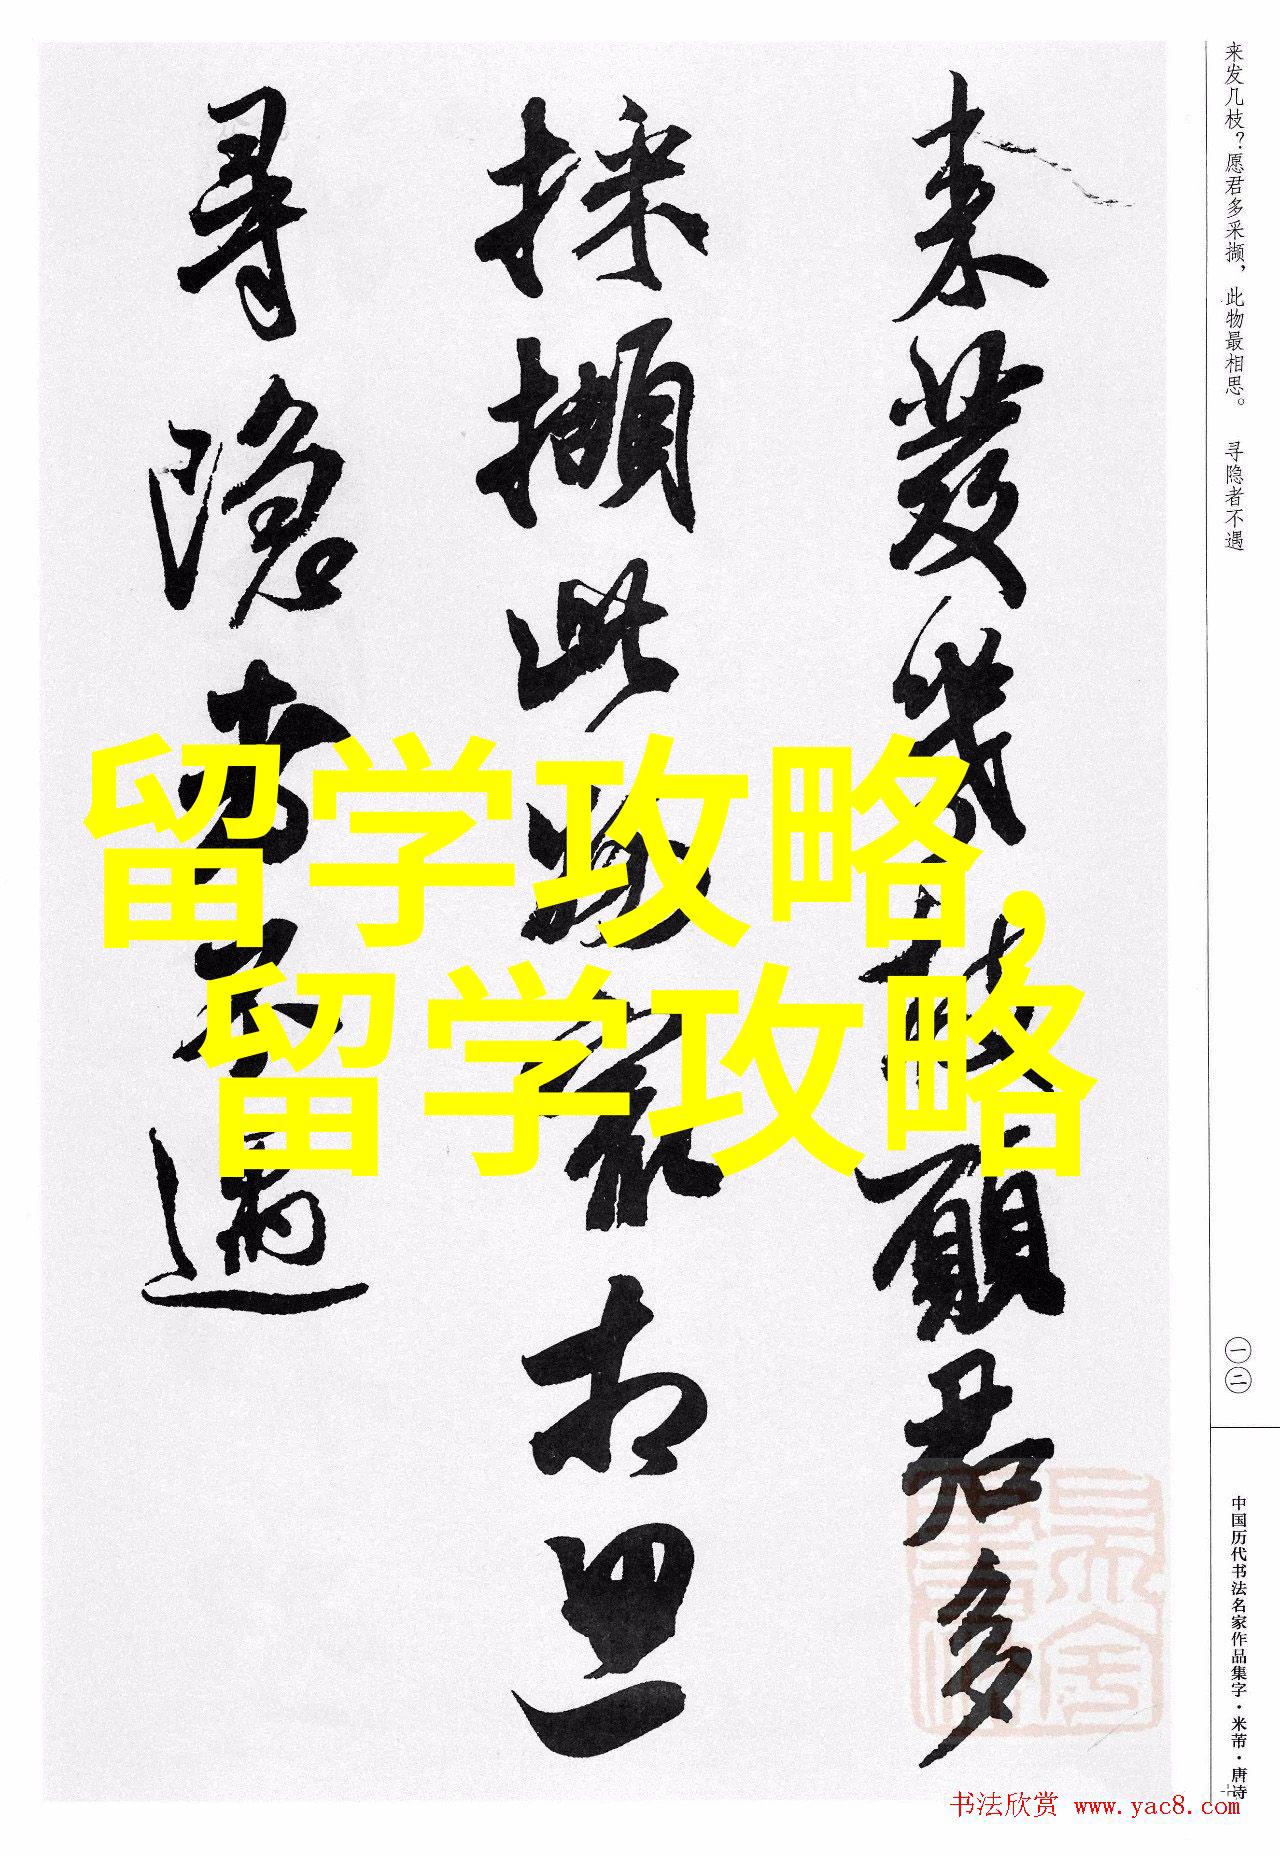 来發幾枝願君多
採擷此物最相思
尋隱者不遇
留学攻略,
留学攻略
来发几枝？愿君多采撷，此物最相思。 寻隐者不遇
一二
中国历代书法名家作品集字·米芾·唐诗
书法欣赏 www.yac8.com